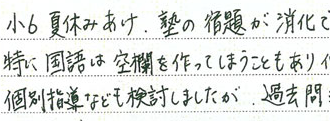 小6 夏休みあけ、塾の宿題が消化で
特に国語は空欄を作ってしまうこともあり
個別指導なども検討しましたが、過去問